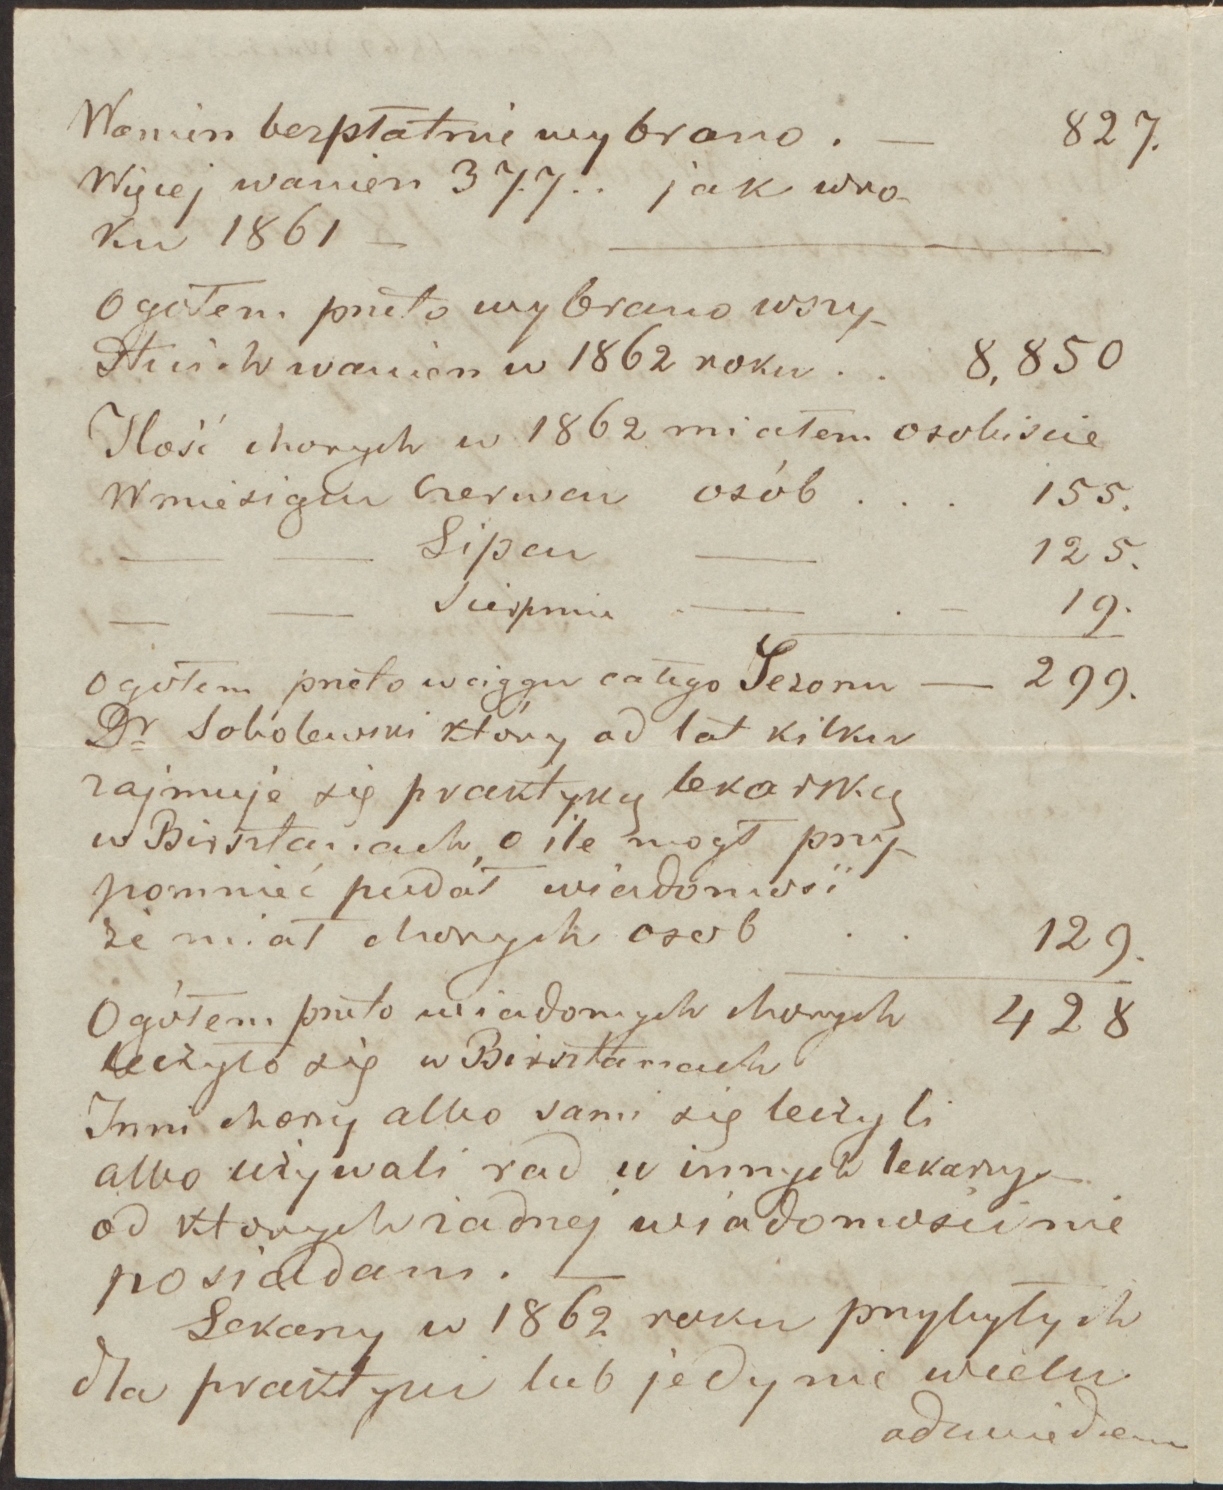 Wanien bezpłatnie wybrano . — 827.
Więcej wanien 377.. jak wro-
ku 1861 —
Ogółem przeto wybrano wszy-
stkich wanien w 1862 roku . . 8,850
Ilość chorych w 1862 miałem osobiście
W miesiącu Czerwcu osób . . . 155.
— — Lipcu — 125.
— — Sierpniu — . — 19.
Ogółem przeto w ciągu całego Sezonu — 299.
Dr Sobolewski który od lat kilku
zajmuje się praktyką lekarską
w Birsztanach, o ile mogł przy-
pomnieć podał wiadomość
że miał chorych osob . . 129.
Ogółem przeto wiadomych chorych 428
leczyło się w Birsztanach
Inni chorzy albo sami się leczyli
albo używali rad u innych lekarzy
od ktorych żadnej wiadomości nie
posiadam. —
Lekarzy w 1862 roku przybyłych
dla praktyki lub jedynie w celu
odwiedzenia